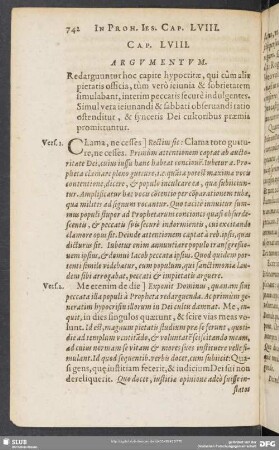 742 IN PROH. IES. CAP. LVIII.
CAP. LVIII.
ARGVMENTVM.
Redarguuntur hoc capite hypocritæ, qui cùm aliis
pietatis officia, tùm verò ieiunia & sobrietatem
simulabant, interim peccatis securè indulgentes.
Simul vera ieiunandi & sabbati obseruandi ratio
ostenditur, & synceris Dei cultoribus præmia
promittuntur.
Vers. 1. CLama, ne cesses] Rectius sic: Clama toto guttu-
re, ne cesses. Primùm attentionem captat ab autto-
ritate Dei, cuius iussu hanc habeat concionem. Iubetur a. Pro-
pheta clamare pleno gutture, i.e. quàta potest maxima vocu
contentione, dicere, & populo inculcare ea, quæ subiiciun-
tur. Amplificatur hæc vocis contentio per comparationem tubæ,
qua milites ad signum vocantur. Quo tacitè innuitur sum-
mus populi stupor ad Prophetarum conciones quasi obsurde-
scentis, & peccatis suis securè indormientis, cui excitando
clamore opus sit. Deinde attentionem captat à reb. ipsis, quas
dicturus sit. Iubetur enim annuntiare populo transgressio-
nem ipsius, & domui Iacob peccata ipsius. Quod quidem por-
tenti simile videbatur, eum populum, qui sanctimoniæ lau-
dem sibi arrogabat, peccati & impietatis arguere.
Vers. 2. Me etenim de die] Exponit Dominus, quænam sint
peccata illa populi à Propheta redarguenda. ac primùm ge-
neratim hypocrisin illorum in Dei cultu damnat. Me, in-
quit, in dies singulos quærunt, & scire vias meas vo-
lunt. Id est, magnum pietatis studium præ se ferunt, quoti-
die ad templum ventitādo, & voluntatē sciscitando meam,
ad cuius normam se vitam & mores suos instituere velle si-
mulant. Id quod sequentib. verbis docet, cum subiicit: Qua-
si gens, quæ iustitiam fecerit, & iudicium Dei sui non
dereliquerit. Quo docet, iustitiæ opinione adeò fuisse in-
flatos